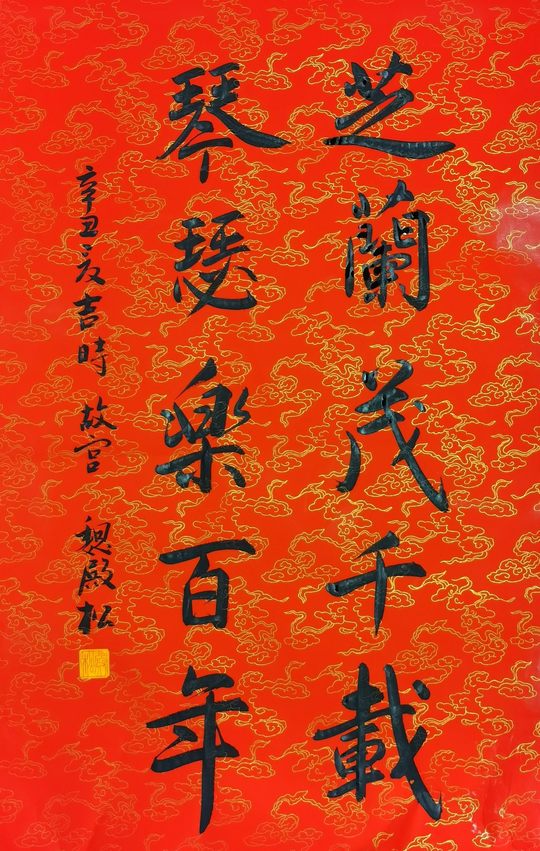 芝蘭茂千載
琴瑟樂百年
辛丑之友吉時 故宮 魏殿松